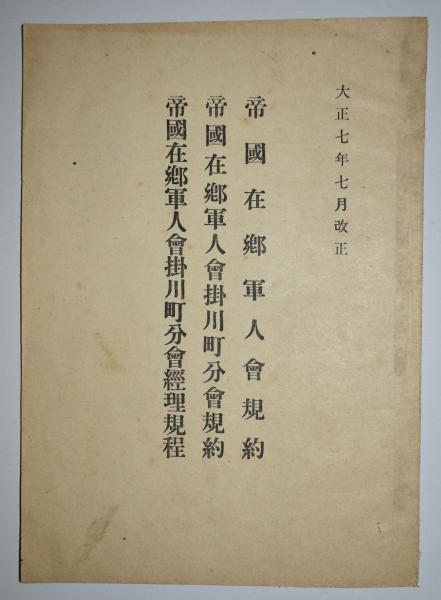 大正七年七月改正
帝國在鄕軍人會規約
帝國在鄕軍人會掛川町分會規約
帝國在鄕軍人會掛川町分會經理規程